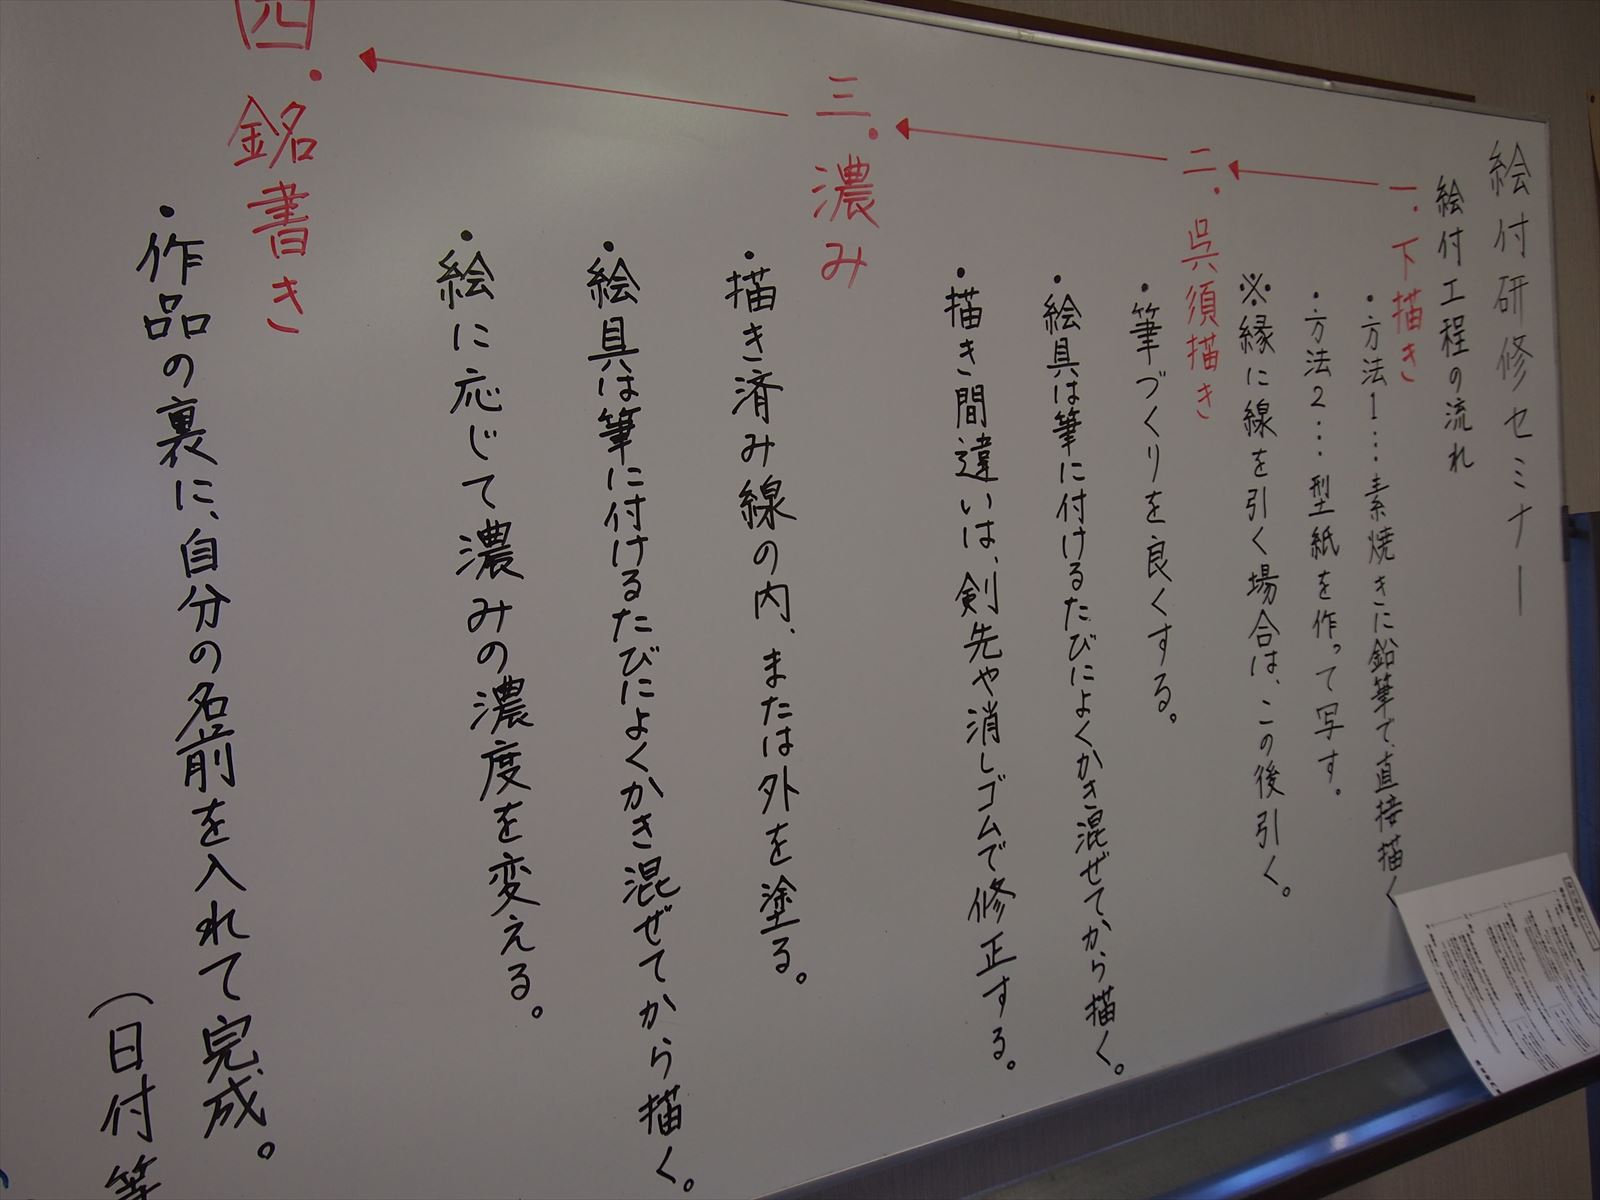 絵付研修セミナー
絵付工程の流れ
一.下描き
・方法1…素焼きに鉛筆で、直接描く
・方法2…型紙を作って写す。
※縁に線を引く場合は、この後引く。
二.呉須描き
・筆づくりを良くする。
・絵具は筆に付けるたびによくかき混ぜてから描く。
・描き間違いは、剣先や消しゴムで修正する。
三.濃み
・描き済み線の内、または外を塗る。
・絵具は筆に付けるたびによくかき混ぜてから描く。
・絵に応じて濃みの濃度を変える。
四.銘書き
・作品の裏に、自分の名前を入れて完成。
(日付等